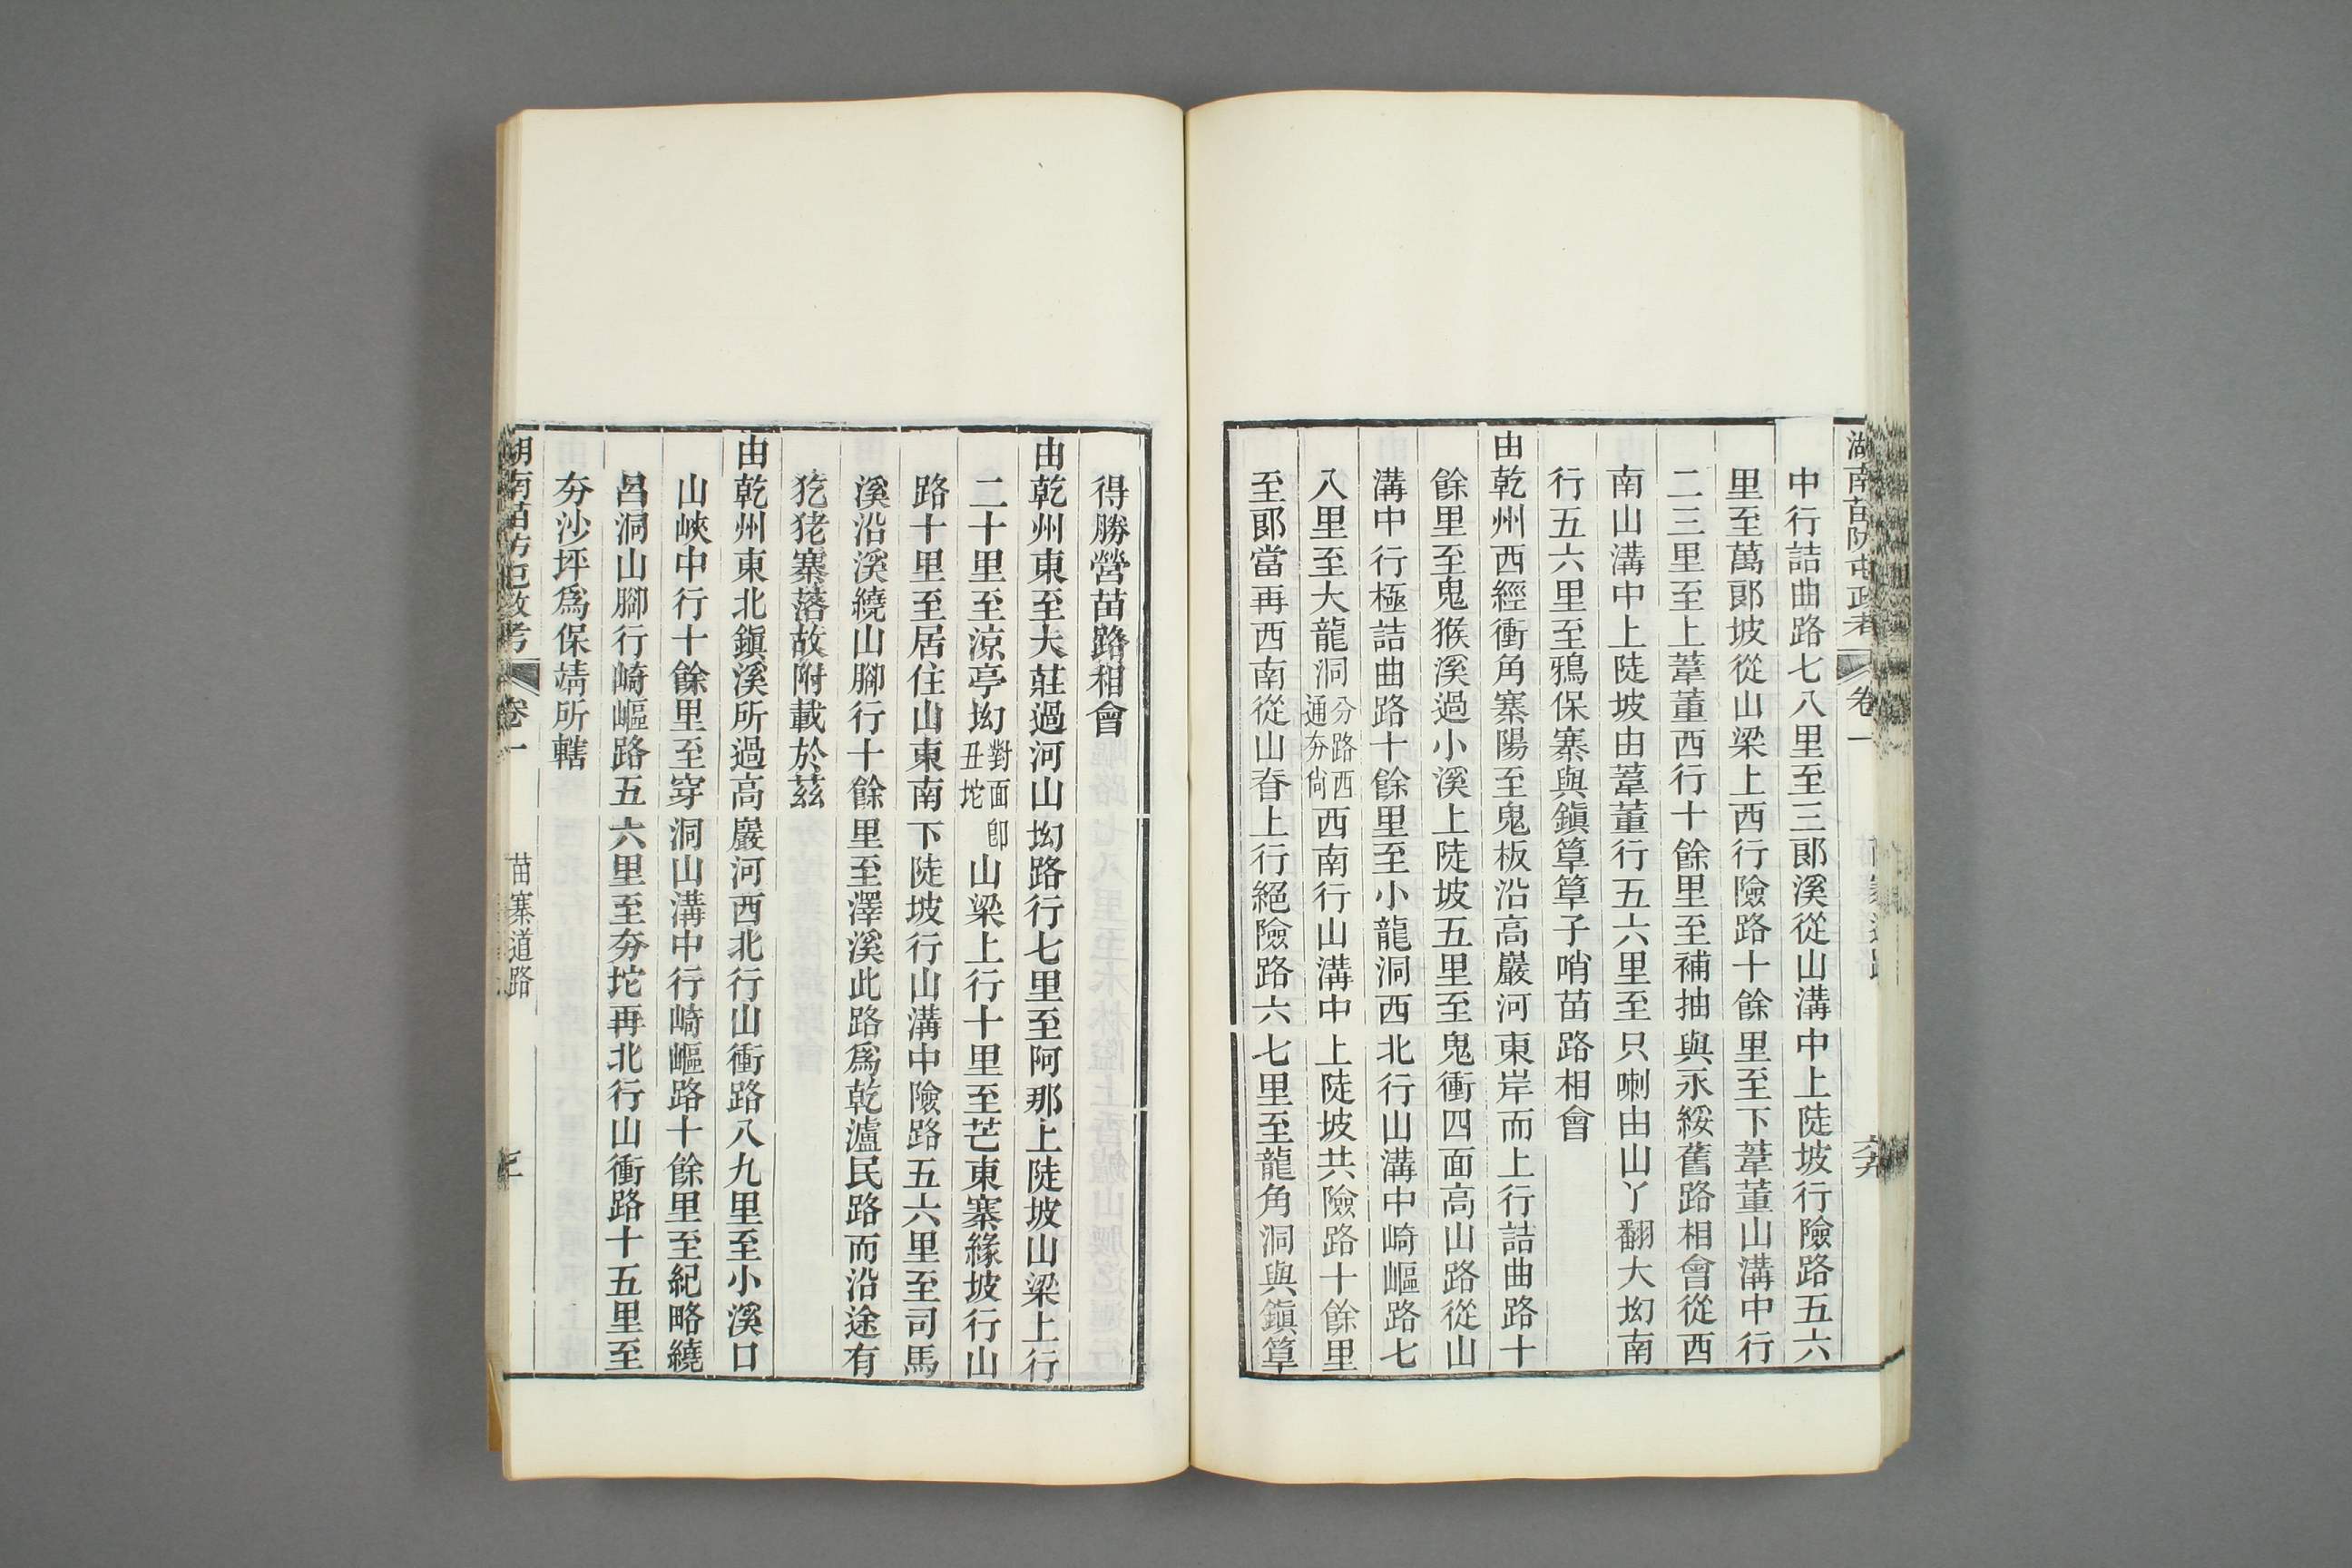 湖南苗防屯政考 卷一
中行詰曲路七八里至三郎溪從山溝中上陡坡行險路五六
里至萬郎坡從山梁上西行險路十餘里至下葦董山溝中行
二三里至上葦董西行十餘里至補抽與永綏舊路相會從西
南山溝中上陡坡由葦董行五六里至只喇由山丫翻大㘭南
行五六里至鴉保寨與鎭筸筸子哨苗路相會
由乾州西經衝角寨陽至鬼板沿高巖河東岸而上行詰曲路十
餘里至鬼猴溪過小溪上陡坡五里至鬼衝四面高山路從山
溝中行極詰曲路十餘里至小龍洞西北行山溝中崎嶇路七
八里至大龍洞分路西西通夯尙西南行山溝中上陡坡共險路十餘里
至郎當再西南從山脊上行絕險路六七里至龍角洞與鎭筸
得勝營苗路相會
由乾州東至大莊過河山㘭路行七里至阿那上陡坡山梁上行
二十里至涼亭㘭對面卽丑坨山梁上行十里至芒東寨緣坡行山
路十里至居住山東南下陡坡行山溝中險路五六里至司馬
溪沿溪繞山腳行十餘里至澤溪此路爲乾瀘民路而沿途有
犵狫寨落故附載於茲
由乾州東北鎭溪所過高巖河西北行山衝路八九里至小溪口
山峽中行十餘里至穿洞山溝中行崎嶇路十餘里至紀略繞
呂洞山腳行崎嶇路五六里至夯坨再北行山衝路十五里至
夯沙坪爲保靖所轄
湖南苗防屯政考 卷一 苗寨道路